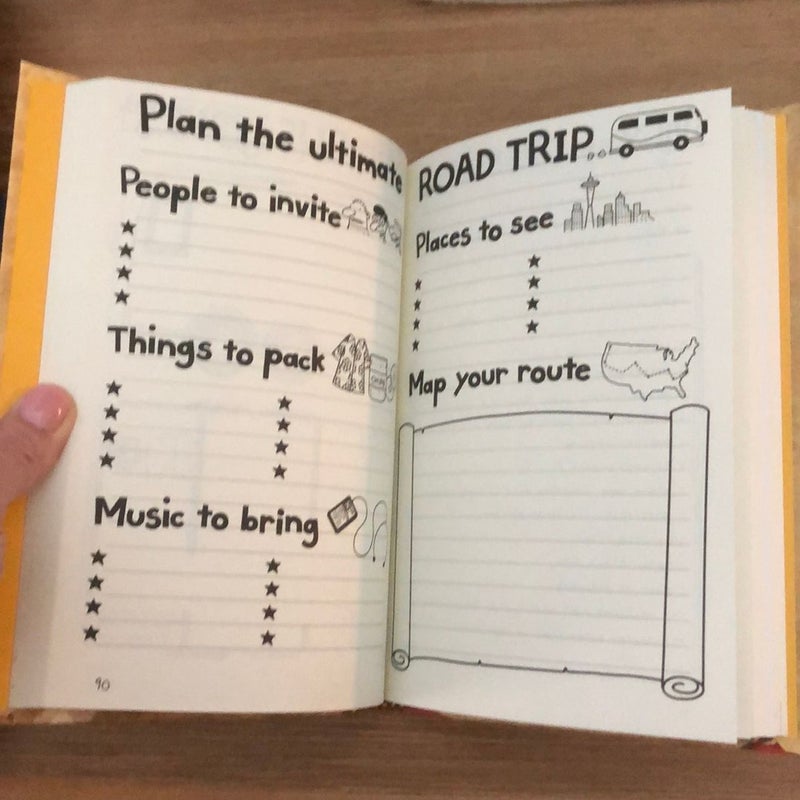 Plan the ultimate
People to invite
Things to pack
Music to bring
90
ROAD TRIP...
Places to see
Map your route